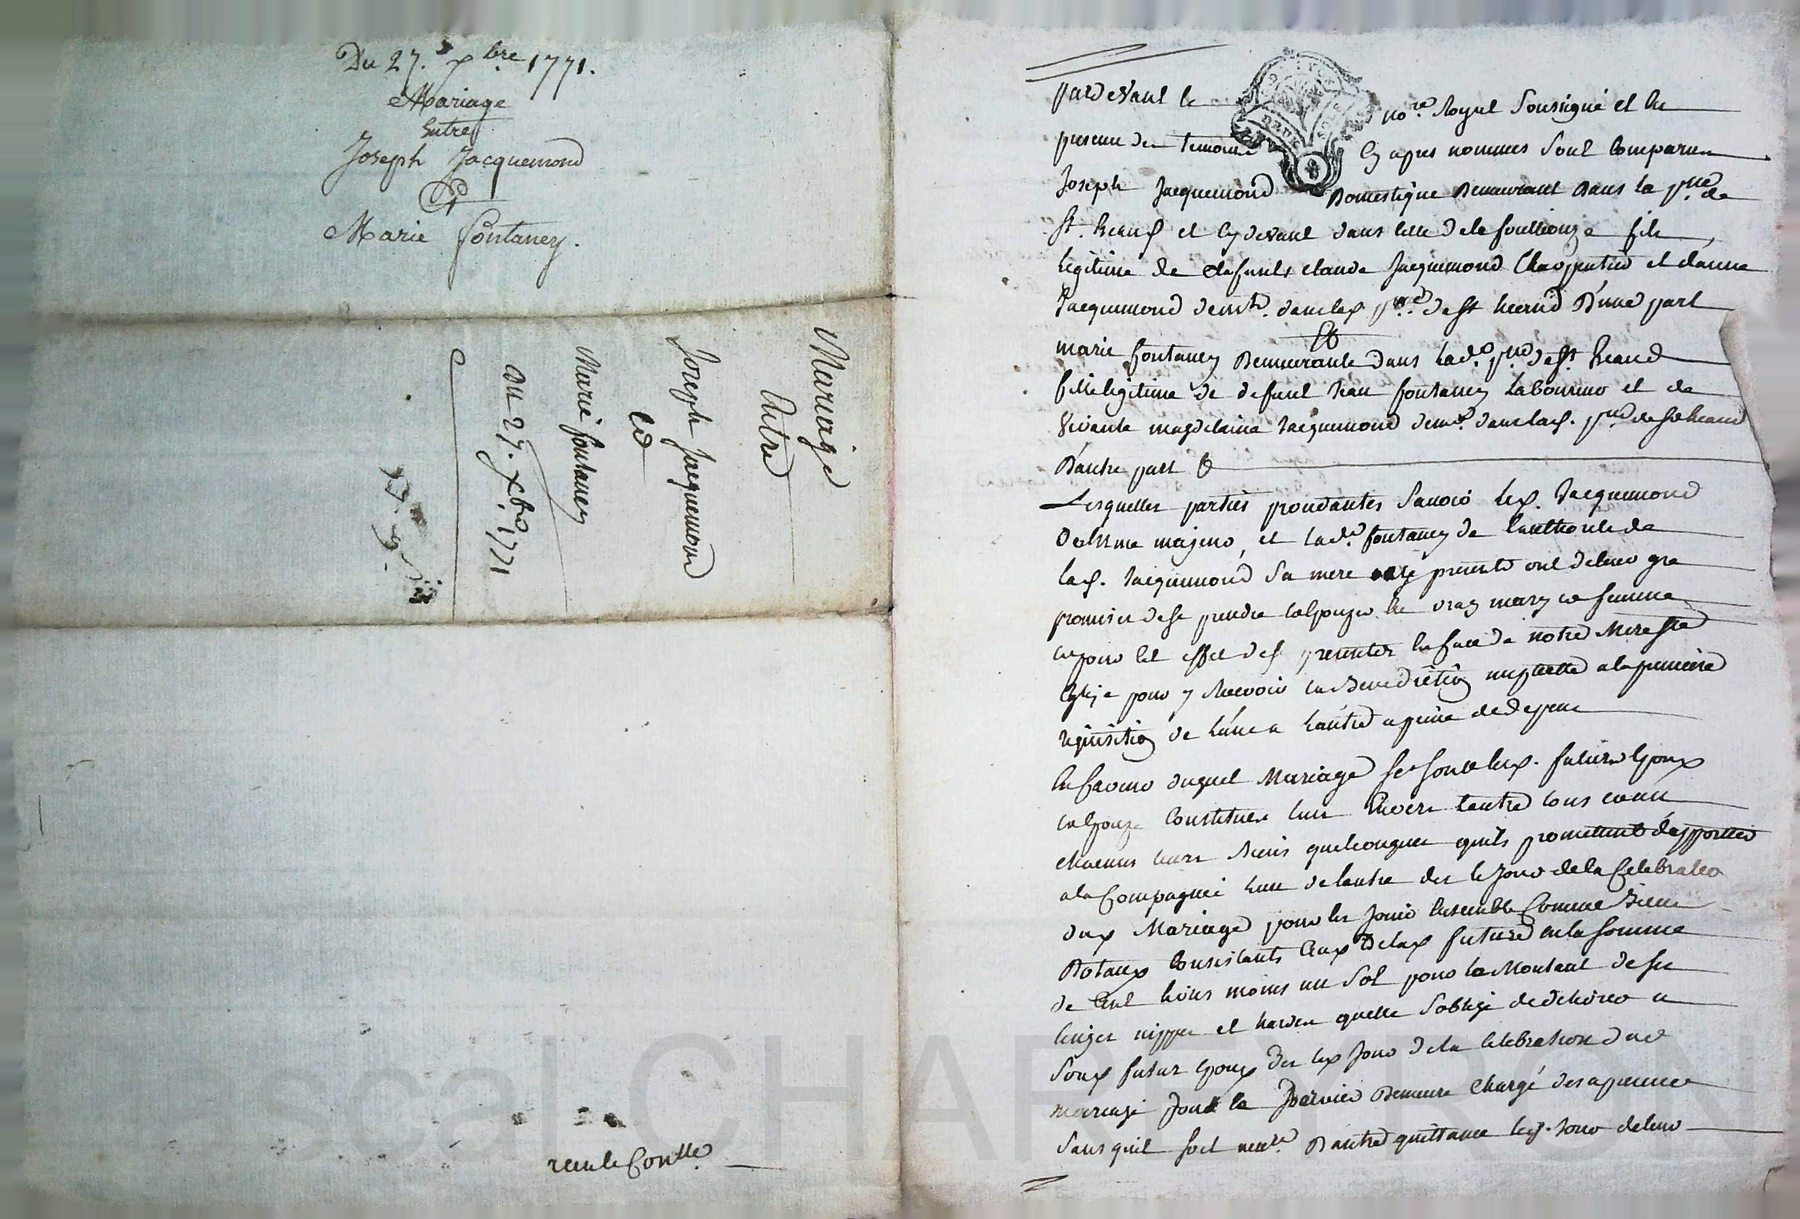 Du 27. xbre 1771.
Mariage
Entre
Joseph Jacquemond
Et
Marie fontaney.
Mariage
Entre
Joseph Jacquemond
Et
Marie fontaney
Du 27. xbre 1771
pardevant le nore Royal Soussigné et En
presence des temoins Cy apres nommes Sont Comparus
Joseph Jacquemond Domestique Demeurant Dans la psse de
St. heand et Cy devant dans celle de la foullouze fils
legitime de defunts claude Jacquemond Charpentier et danne
Jacquemond demt. dans lad. psse de st heand D'une part
Et
marie fontaney Demeurante dans lad. psse de st heand
fille legitime de defunt Jean fontaney Laboureur et de
Vivante magdelaine Jacquemond demte dans lad. psse de st heand
Dautre part
Lesquelles parties procedantes Savoir led. Jacquemond
Comme majeur, et lade fontaney de Lauthorité de
lad. Jacquemond Sa mere presente ont de leur gré
promis de se prendre et Epouser En vray mary et femme
et pour Cet effet de se presenter En face de notre Mere Ste
Eglise pour y Recevoir la Benediction nuptialle a la premiere
requisition de Lune a Lautre a peine de depens
En faveur duquel Mariage se sont lesd. futurs Epoux
et Epouse Constitués Lun Envers Lautre tous et un
chacuns leurs Biens quelconques quils promettent dapporter
a la Compagnie Lun de lautre des le Jour de la Celebration
dud Mariage pour les Jouir Ensemble Comme Biens
Dotaux Consistants Ceux de lad future en la somme
de Cent livres moins un Sol pour le Montant de ses
linges nippes et hardes quelle Soblige de delivrer a
Sond futur Epoux des led Jour de la Celebration dud
mariage dont le Dernier Demeure Chargé des a present
Sans quil soit necre Dautre quittance led. Jour de leur